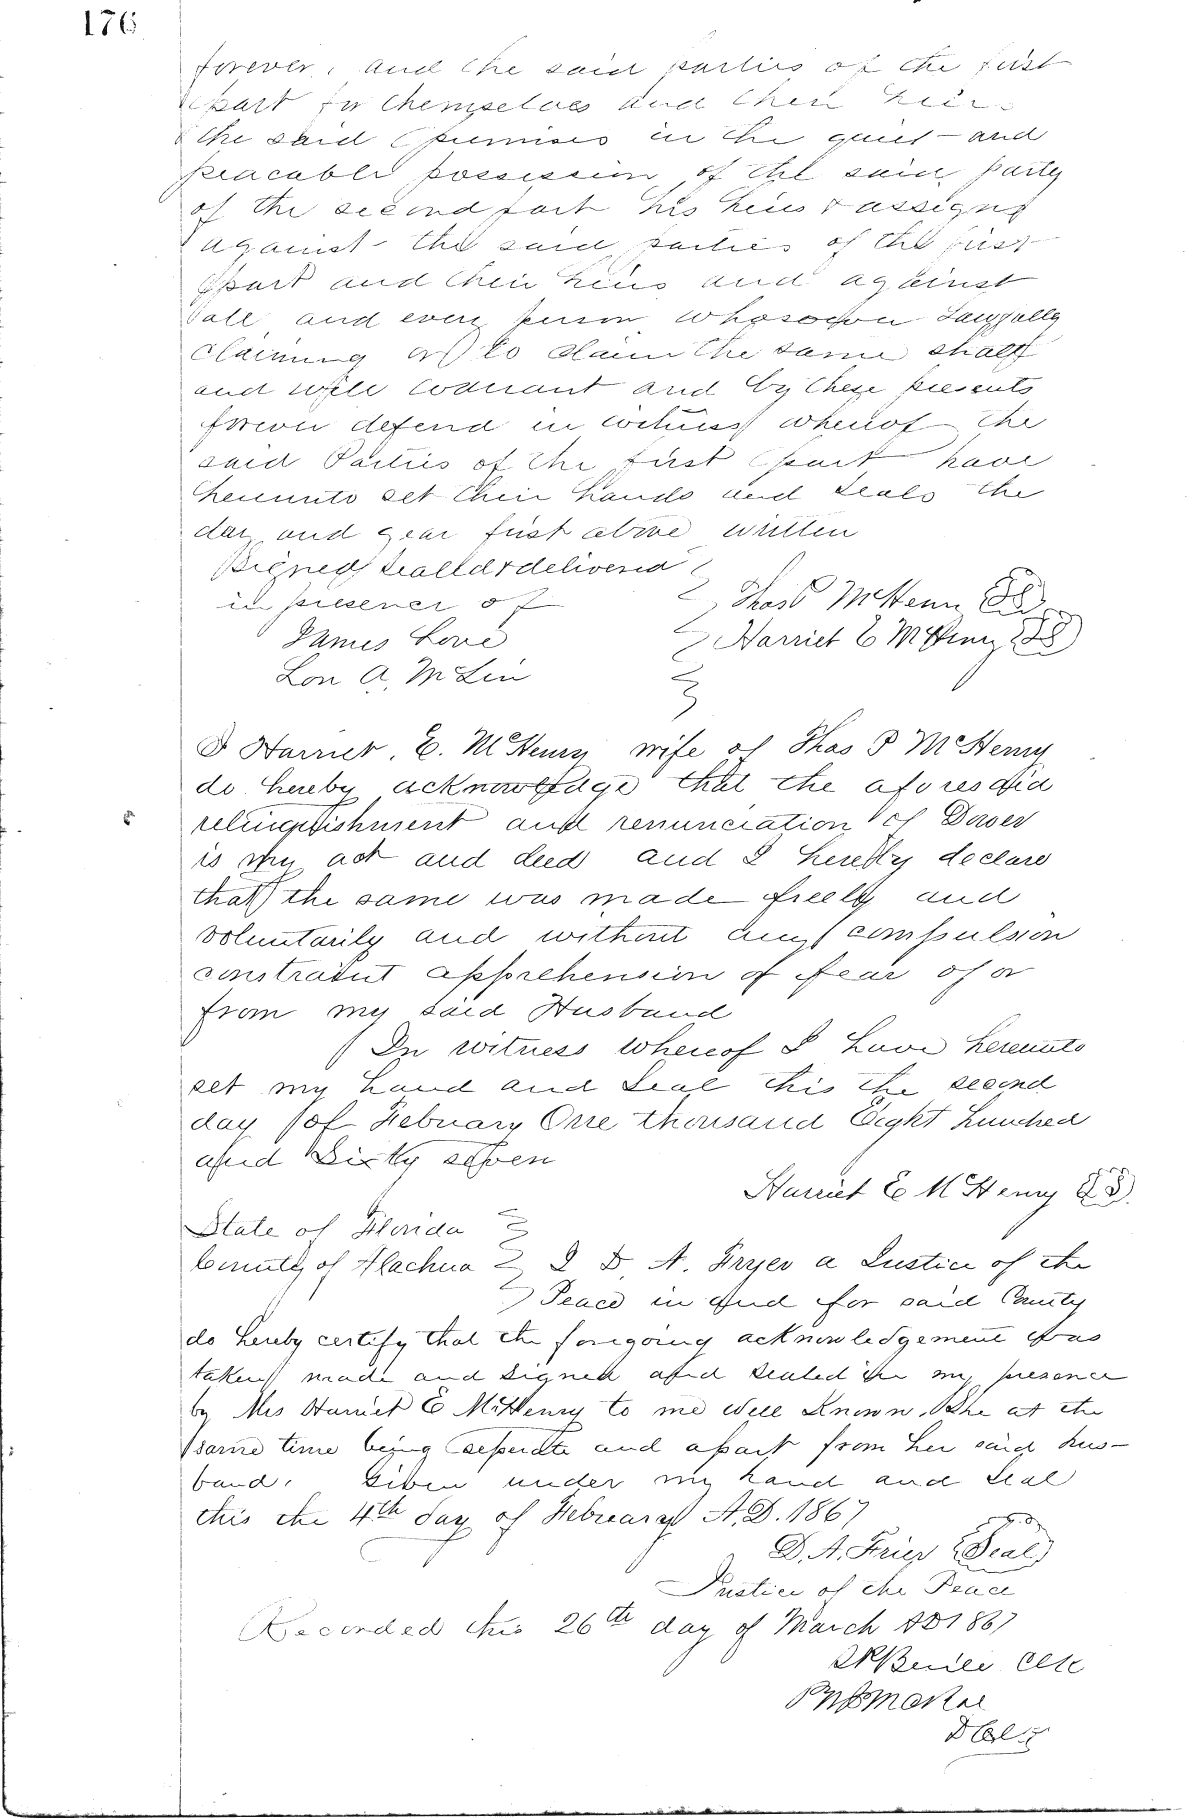 176
forever, and the said parties of the first
part for themselves and their heirs
the said premises in the quiet and
peacable possession of the said party
of the second part his heirs & assigns
against the said parties of the first
part and their heirs and against
all and every person whosoever Lawfully
claiming or to claim the same shall
and will warrant and by these presents
forever defend in witness whereof the
said Parties of the first part have
hereunto set their hands and seals the
day and year first above written
Signed sealed & delivered
in presence of Thos P McHenry LS
James Love Harriet E McHenry LS
Lon A. McLin
I Harriet. E. McHenry wife of Thos P McHenry
do hereby acknowledge that the aforesaid
relinquishment and renunciation of Dower
is my act and deed and I hereby declare
that the same was made freely and
voluntarily and without any compulsion
constraint apprehension of fear of or
from my said Husband
In witness whereof I have hereunto
set my hand and Seal this the second
day of February One thousand Eight hundred
and Sixty seven
Harriet E McHenry LS
State of Florida
County of Alachua I D. A. Fryer a Justice of the
Peace in and for said County
do hereby certify that the foregoing acknowledgement was
taken made and signed and sealed in my presence
by Mrs Harriet E McHenry to me well Known. She at the
same time being seperate and apart from her said hus-
band. Given under my hand and seal
this the 4th day of February A.D. 1867
D. A. Frier Seal
Justice of the Peace
Recorded this 26th day of March AD 1867
Clk